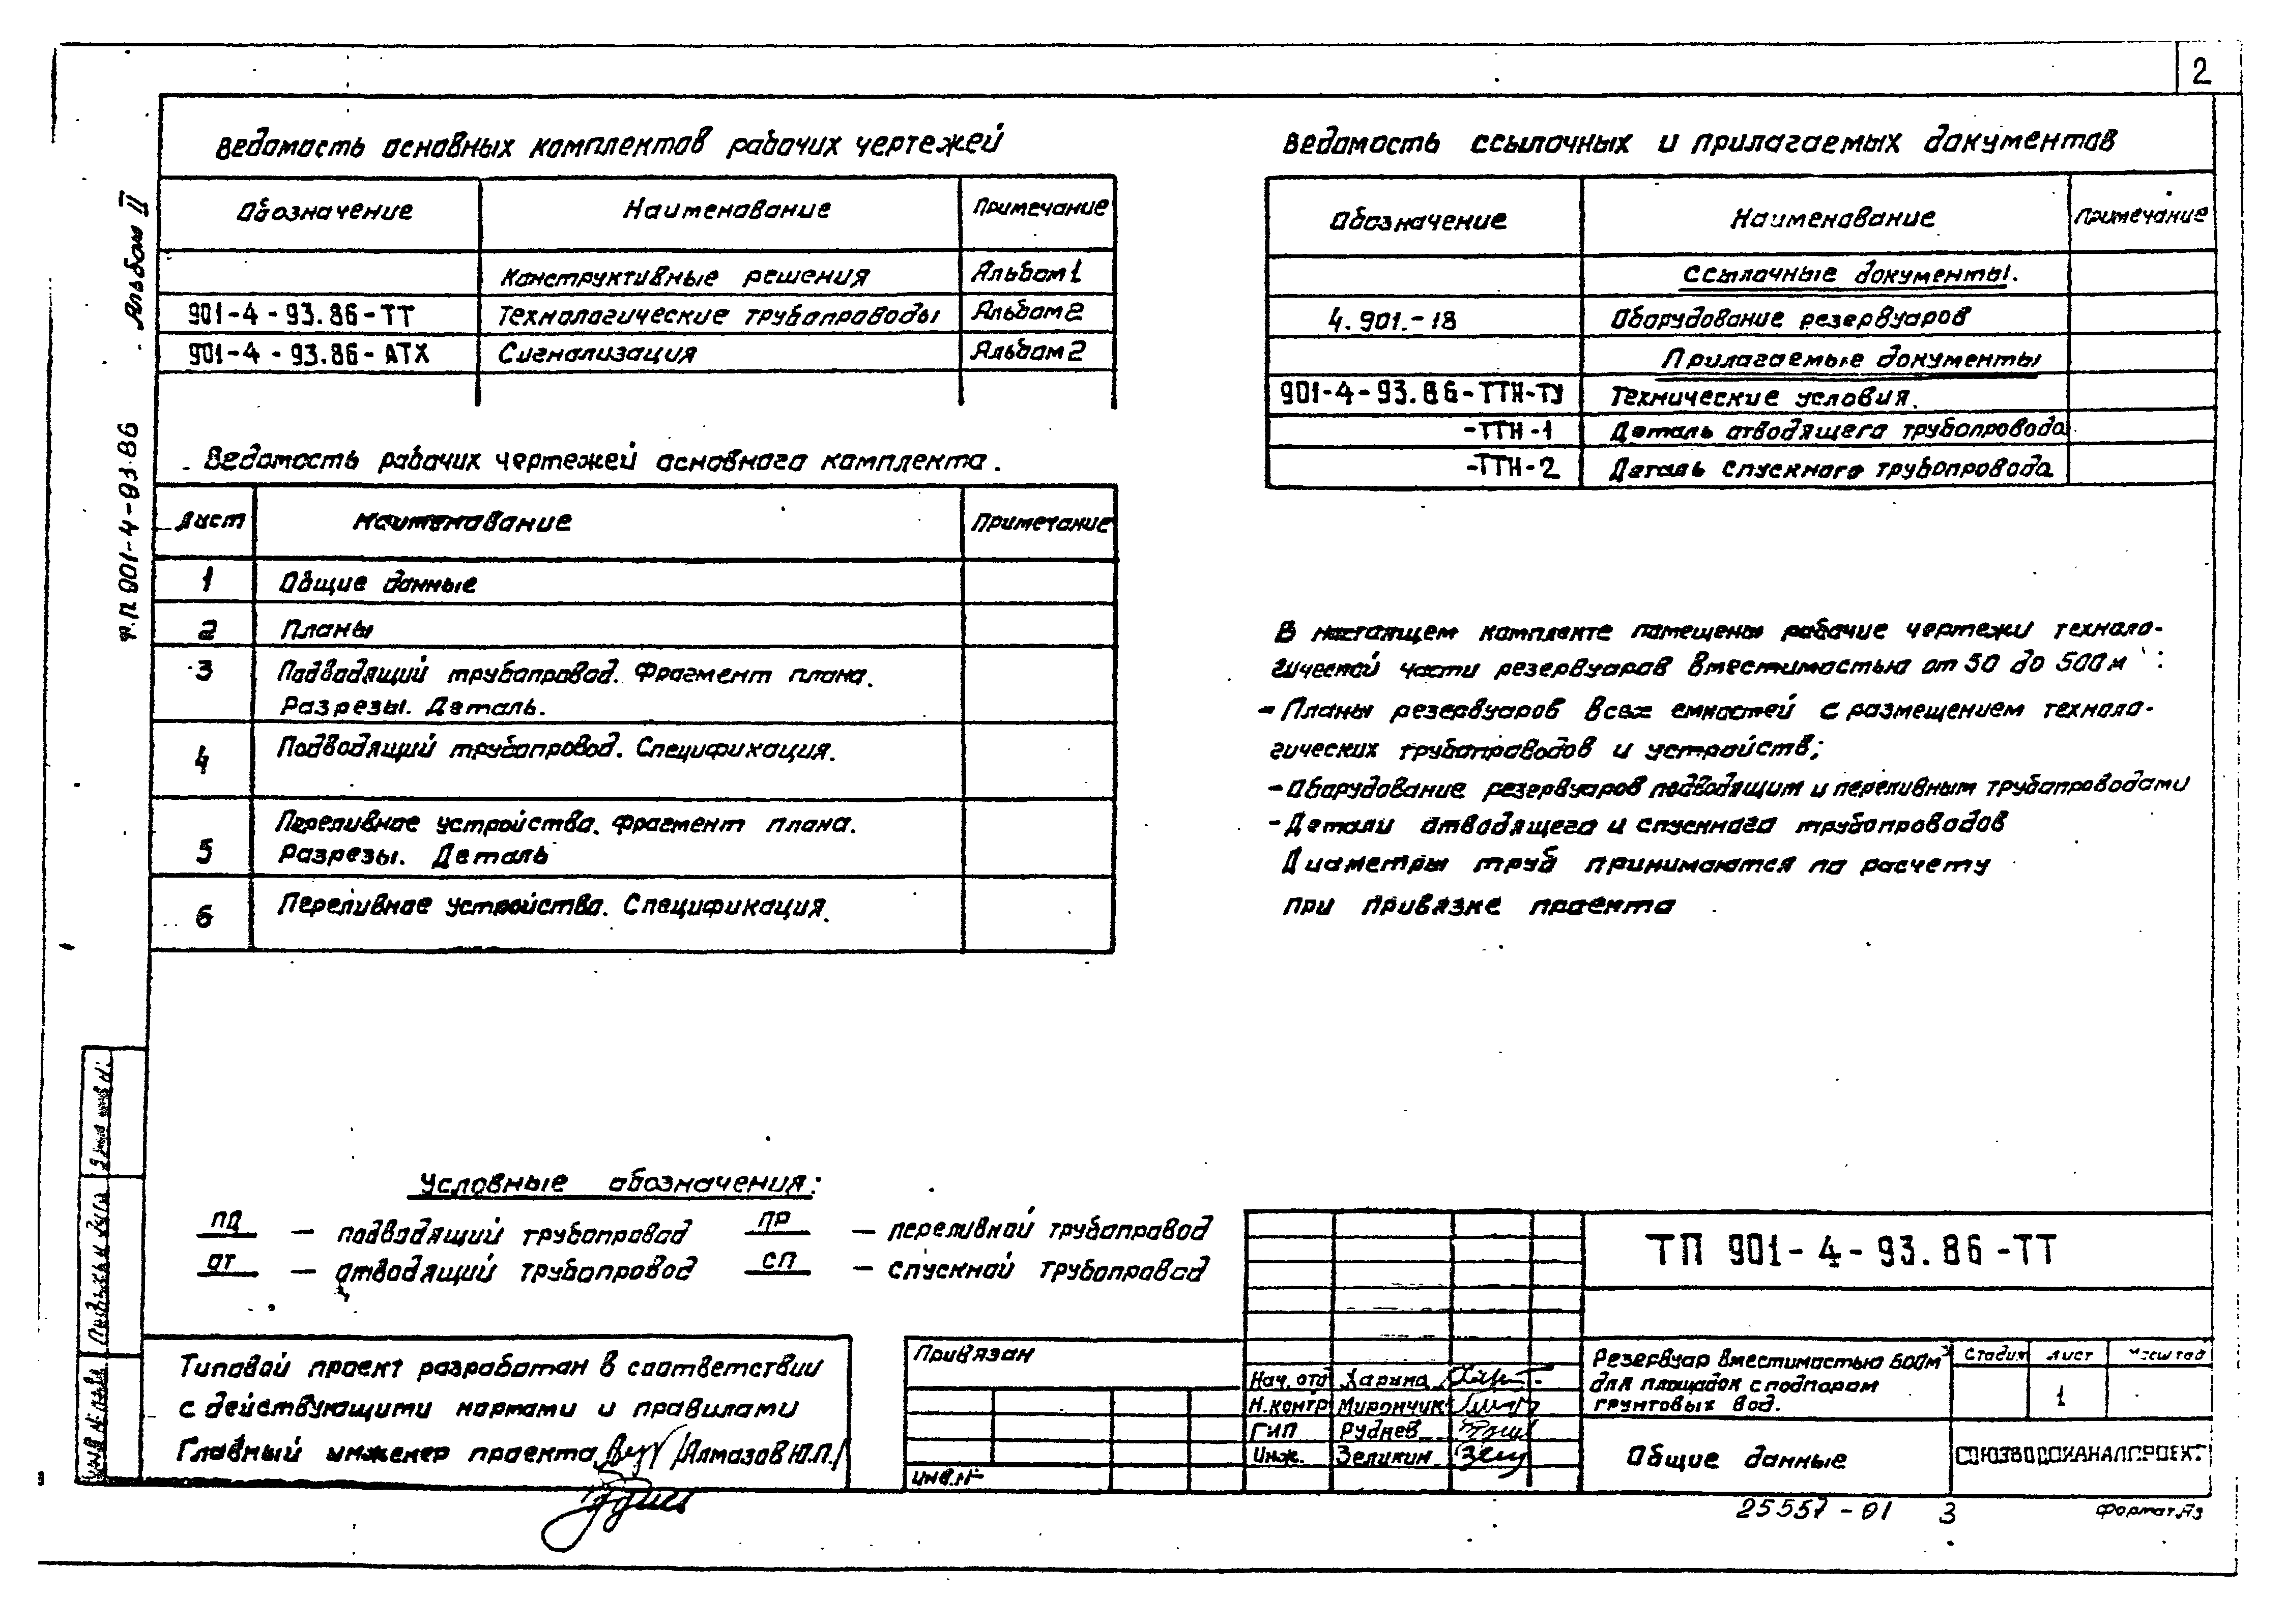 2
Альбом II
Ф.П. 901-4-93.86
Ведомость основных комплектов рабочих чертежей
Обозначение Наименование Примечание
Конструктивные решения Альбом 1
901-4-93.86-ТТ Технологические трубопроводы Альбом 2
901-4-93.86-АТХ Сигнализация Альбом 2
Ведомость рабочих чертежей основного комплекта.
Лист Наименование Примечание
1 Общие данные
2 Планы
3 Подводящий трубопровод. Фрагмент плана.
Разрезы. Деталь.
4 Подводящий трубопровод. Спецификация.
Переливное устройство. Фрагмент плана.
5 Разрезы. Деталь
6 Переливное устройство. Спецификация.
Ведомость ссылочных и прилагаемых документов
Обозначение Наименование Примечание
Ссылочные документы.
4.901.-18 Оборудование резервуаров
Прилагаемые документы
901-4-93.86-ТТН-ТУ Технические условия.
-ТТН-1 Деталь отводящего трубопровода
-ТТН-2 Деталь спускного трубопровода
В настоящем комплекте помещены рабочие чертежи техноло-
гической части резервуаров вместимостью от 50 до 500м³:
- Планы резервуаров всех емкостей с размещением техноло-
гических трубопроводов и устройств;
- Оборудование резервуаров подводящим и переливным трубопроводами
- Детали отводящего и спускного трубопроводов
Диаметры труб принимаются по расчету
при привязке проекта
Условные обозначения:
ПД — подводящий трубопровод ПР — переливной трубопровод
ОТ — отводящий трубопровод СП — спускной трубопровод
Типовой проект разработан в соответствии
с действующими нормами и правилами
Главный инженер проекта /Алмазов Ю.П./
Привязан
Инв.№
Нач. отд Харина
Н.контр Мирончик
ГИП Руднев
Инж. Зеликин
ТП 901-4-93.86-ТТ
Резервуар вместимостью 500м³
для площадок с подпором
грунтовых вод.
Стадия Лист Масштаб
1
Общие данные
СОЮЗВОДОКАНАЛПРОЕКТ
25557-01 3 Формат А3
Инв.№ подл. Подпись и дата Взам. инв.№